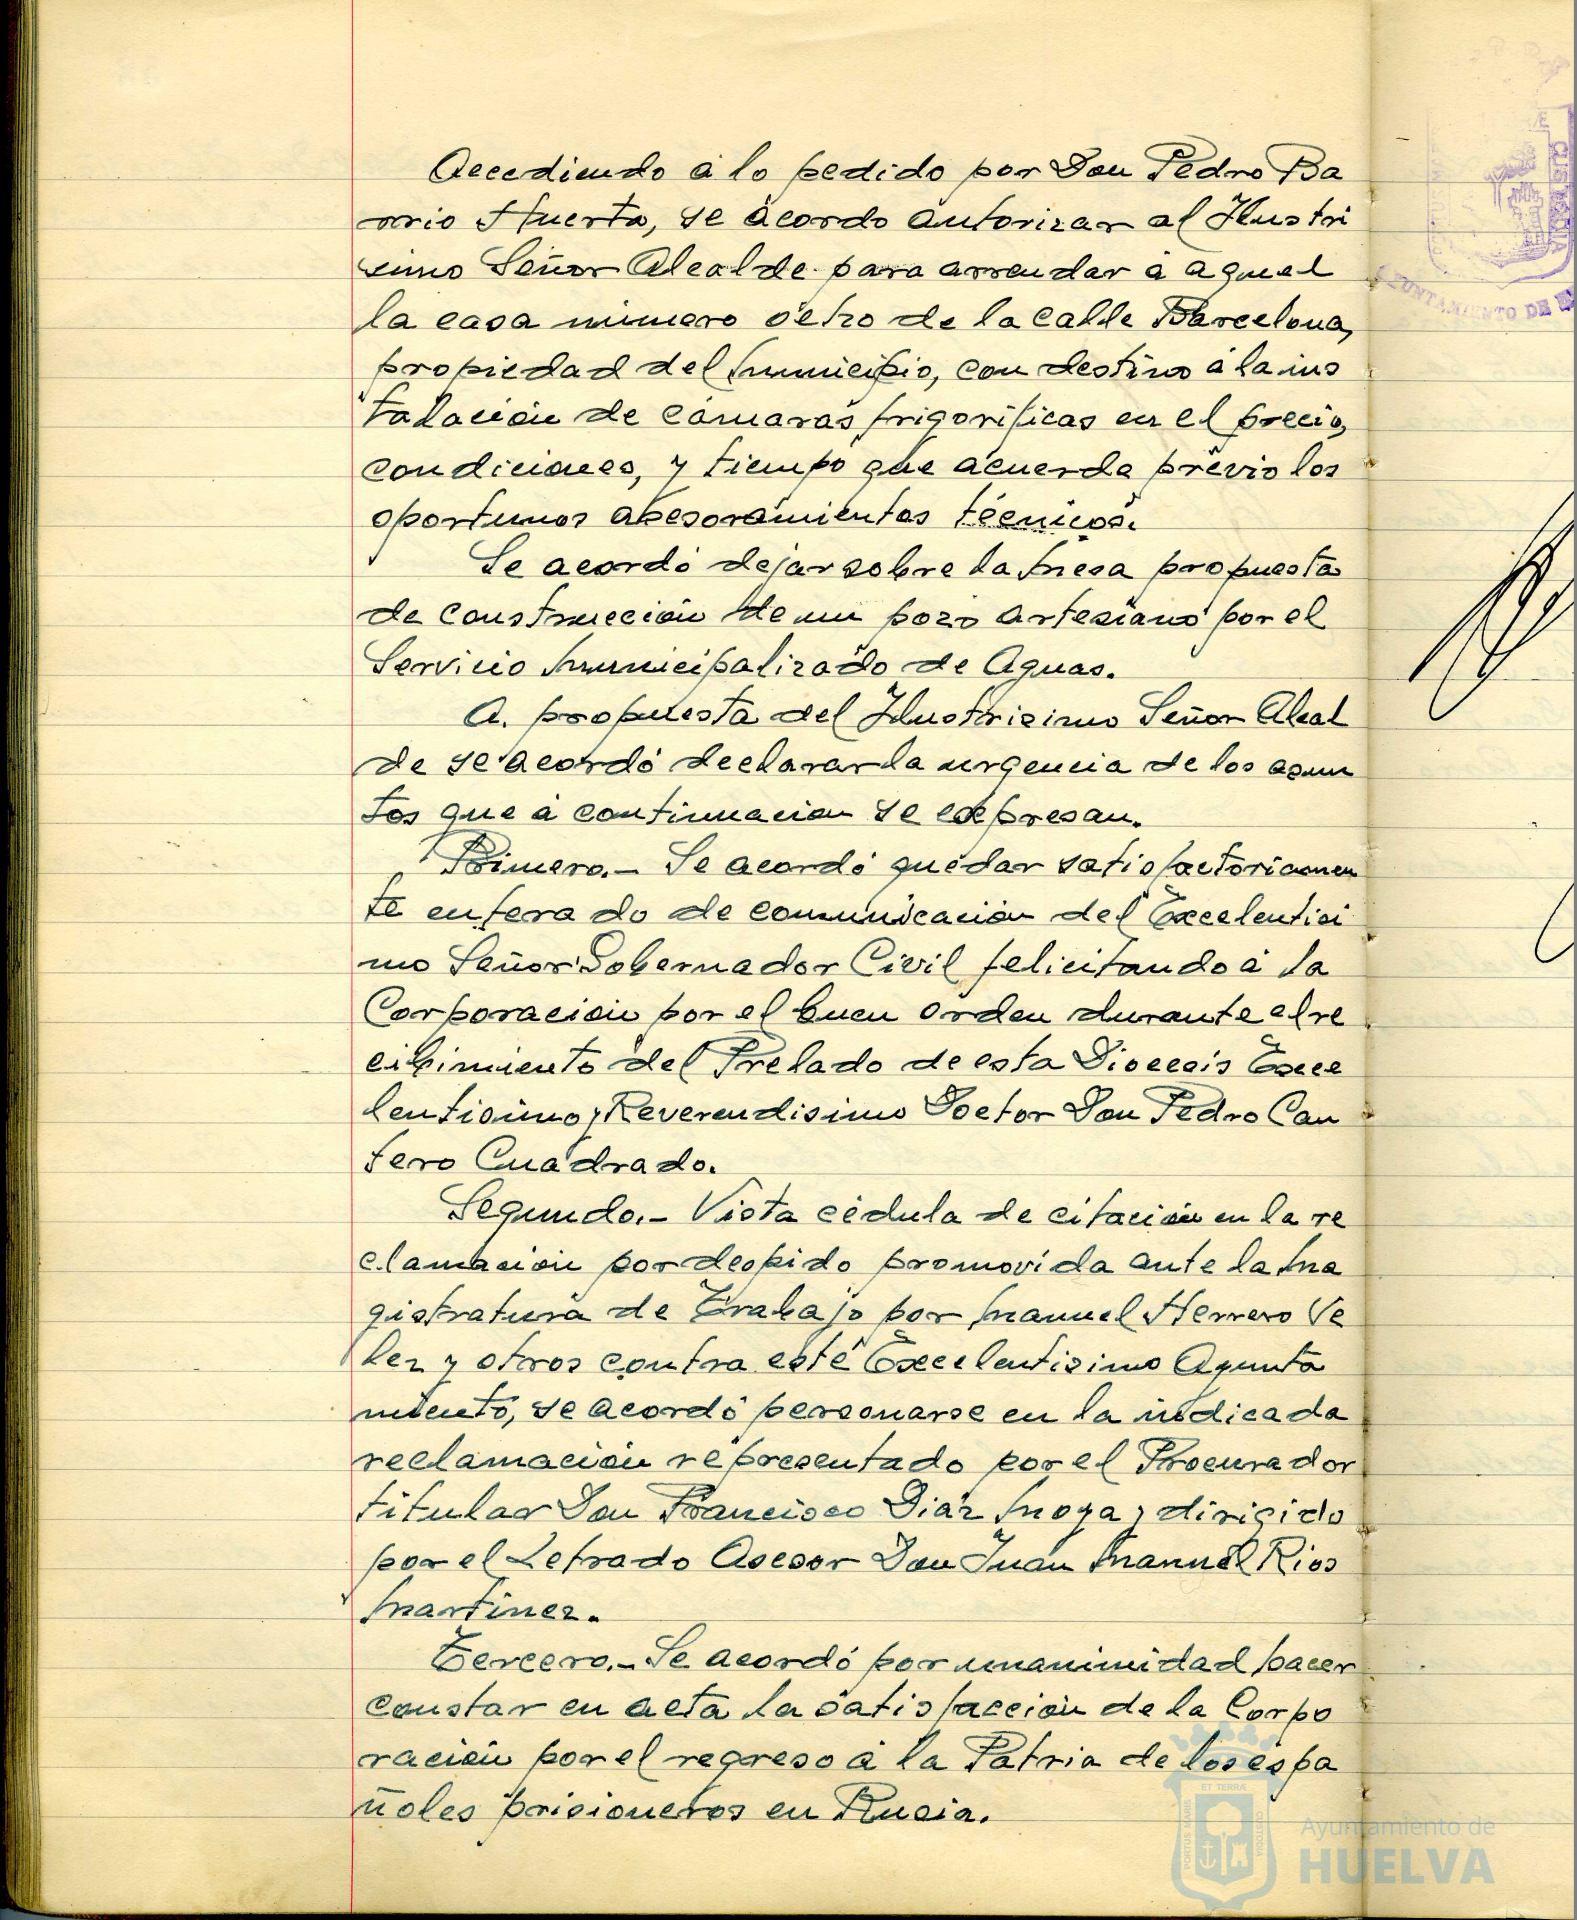 Accediendo á lo pedido por Don Pedro Ba
rrio Huerta, se acordo autorizar al Ilustri
simo Señor Alcalde para arrendar á aquel
la casa número ocho de la calle Barcelona,
propiedad del Municipio, con destino á la ins
talación de cámaras frigoríficas en el precio,
condiciones, y tiempo que acuerda prévio los
oportunos asesoramientos técnicos.
Se acordó dejar sobre la Mesa propuesta
de construcción de un pozo artesiano por el
Servicio Municipalizado de Aguas.
A. propuesta del Ilustrisimo Señor Alcal
de se acordó declarar la urgencia de los asun
tos que á continuacion se expresan.
Primero.- Se acordó quedar satisfactoriamen
te enterado de comunicación del Excelentisi
mo Señor Gobernador Civil felicitando á la
Corporación por el buen orden durante el re
cibimiento del Prelado de esta Diocesis Exce
lentisimo y Reverendisimo Doctor Don Pedro Can
tero Cuadrado.
Segundo.- Vista cédula de citación en la re
clamación por despido promovida ante la Ma
gistratura de Trabajo por Manuel Herrero Ve
lez y otros contra este Excelentisimo Ayunta
miento, se acordó personarse en la indicada
reclamación representado por el Procurador
titular Don Francisco Diaz Moya y dirigido
por el Letrado Asesor Don Juan Manuel Rios
Martinez.
Tercero.- Se acordó por unanimidad hacer
constar en acta la satisfacción de la Corpo
ración por el regreso á la Patria de los espa
ñoles prisioneros en Rusia.
CUSTODIA
AYUNTAMIENTO DE
ET TERRÆ
PORTUS MARIS
CUSTODIA
Ayuntamiento de
HUELVA